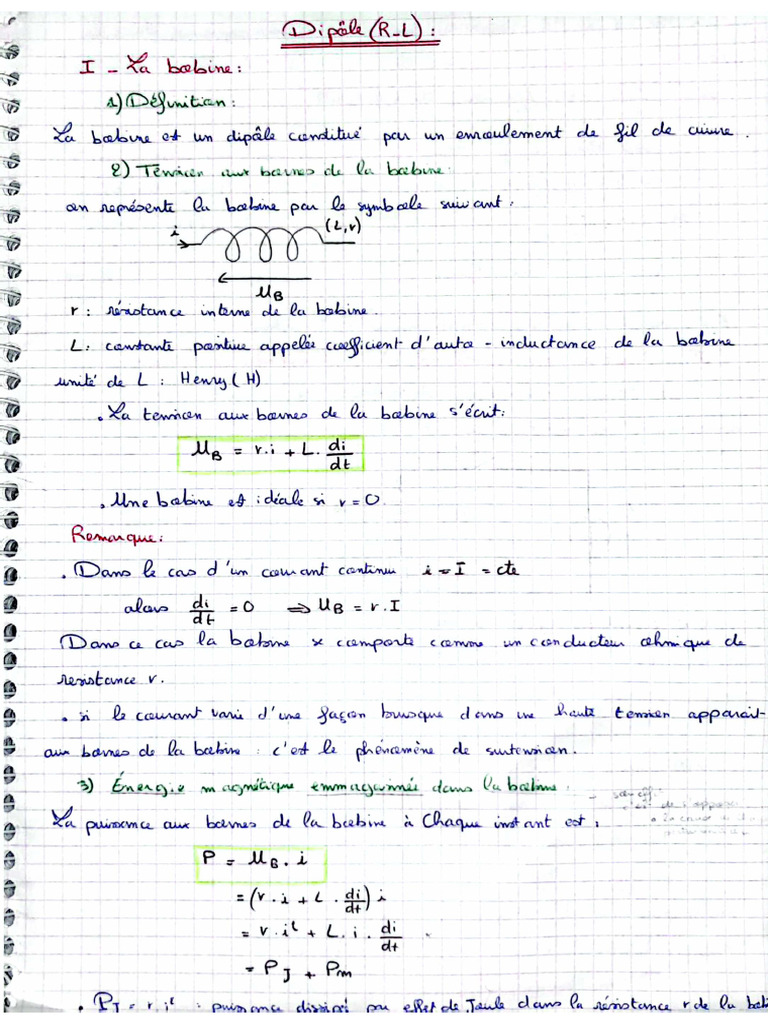 Dipôle (R-L) :
I - La bobine :
1) Définition :
La bobine est un dipôle constitué par un enroulement de fil de cuivre.
2) Tension aux bornes de la bobine
on représente la bobine par le symbole suivant :
i (L,r)
u_B
r : résistance interne de la bobine.
L : constante positive appelée coefficient d'auto-inductance de la bobine
unité de L : Henry (H)
. La tension aux bornes de la bobine s'écrit :
u_B = r.i + L. di/dt
. Une bobine est idéale si r = 0
Remarque :
. Dans le cas d'un courant continu i = I = cte
alors di/dt = 0 ⇒ u_B = r.I
Dans ce cas la bobine se comporte comme un conducteur ohmique de
resistance r.
. si le courant varie d'une façon brusque dans une haute tension apparait
aux bornes de la bobine : c'est le phénomène de surtension.
3) Énergie magnétique emmagasinée dans la bobine.
La puissance aux bornes de la bobine à chaque instant est :
P = u_B . i
= (r.i + L . di/dt) i
= r.i² + L.i. di/dt
= P_J + P_m
. P_J = r.i² : puissance dissipé par effet de Joule dans la résistance r de la bob